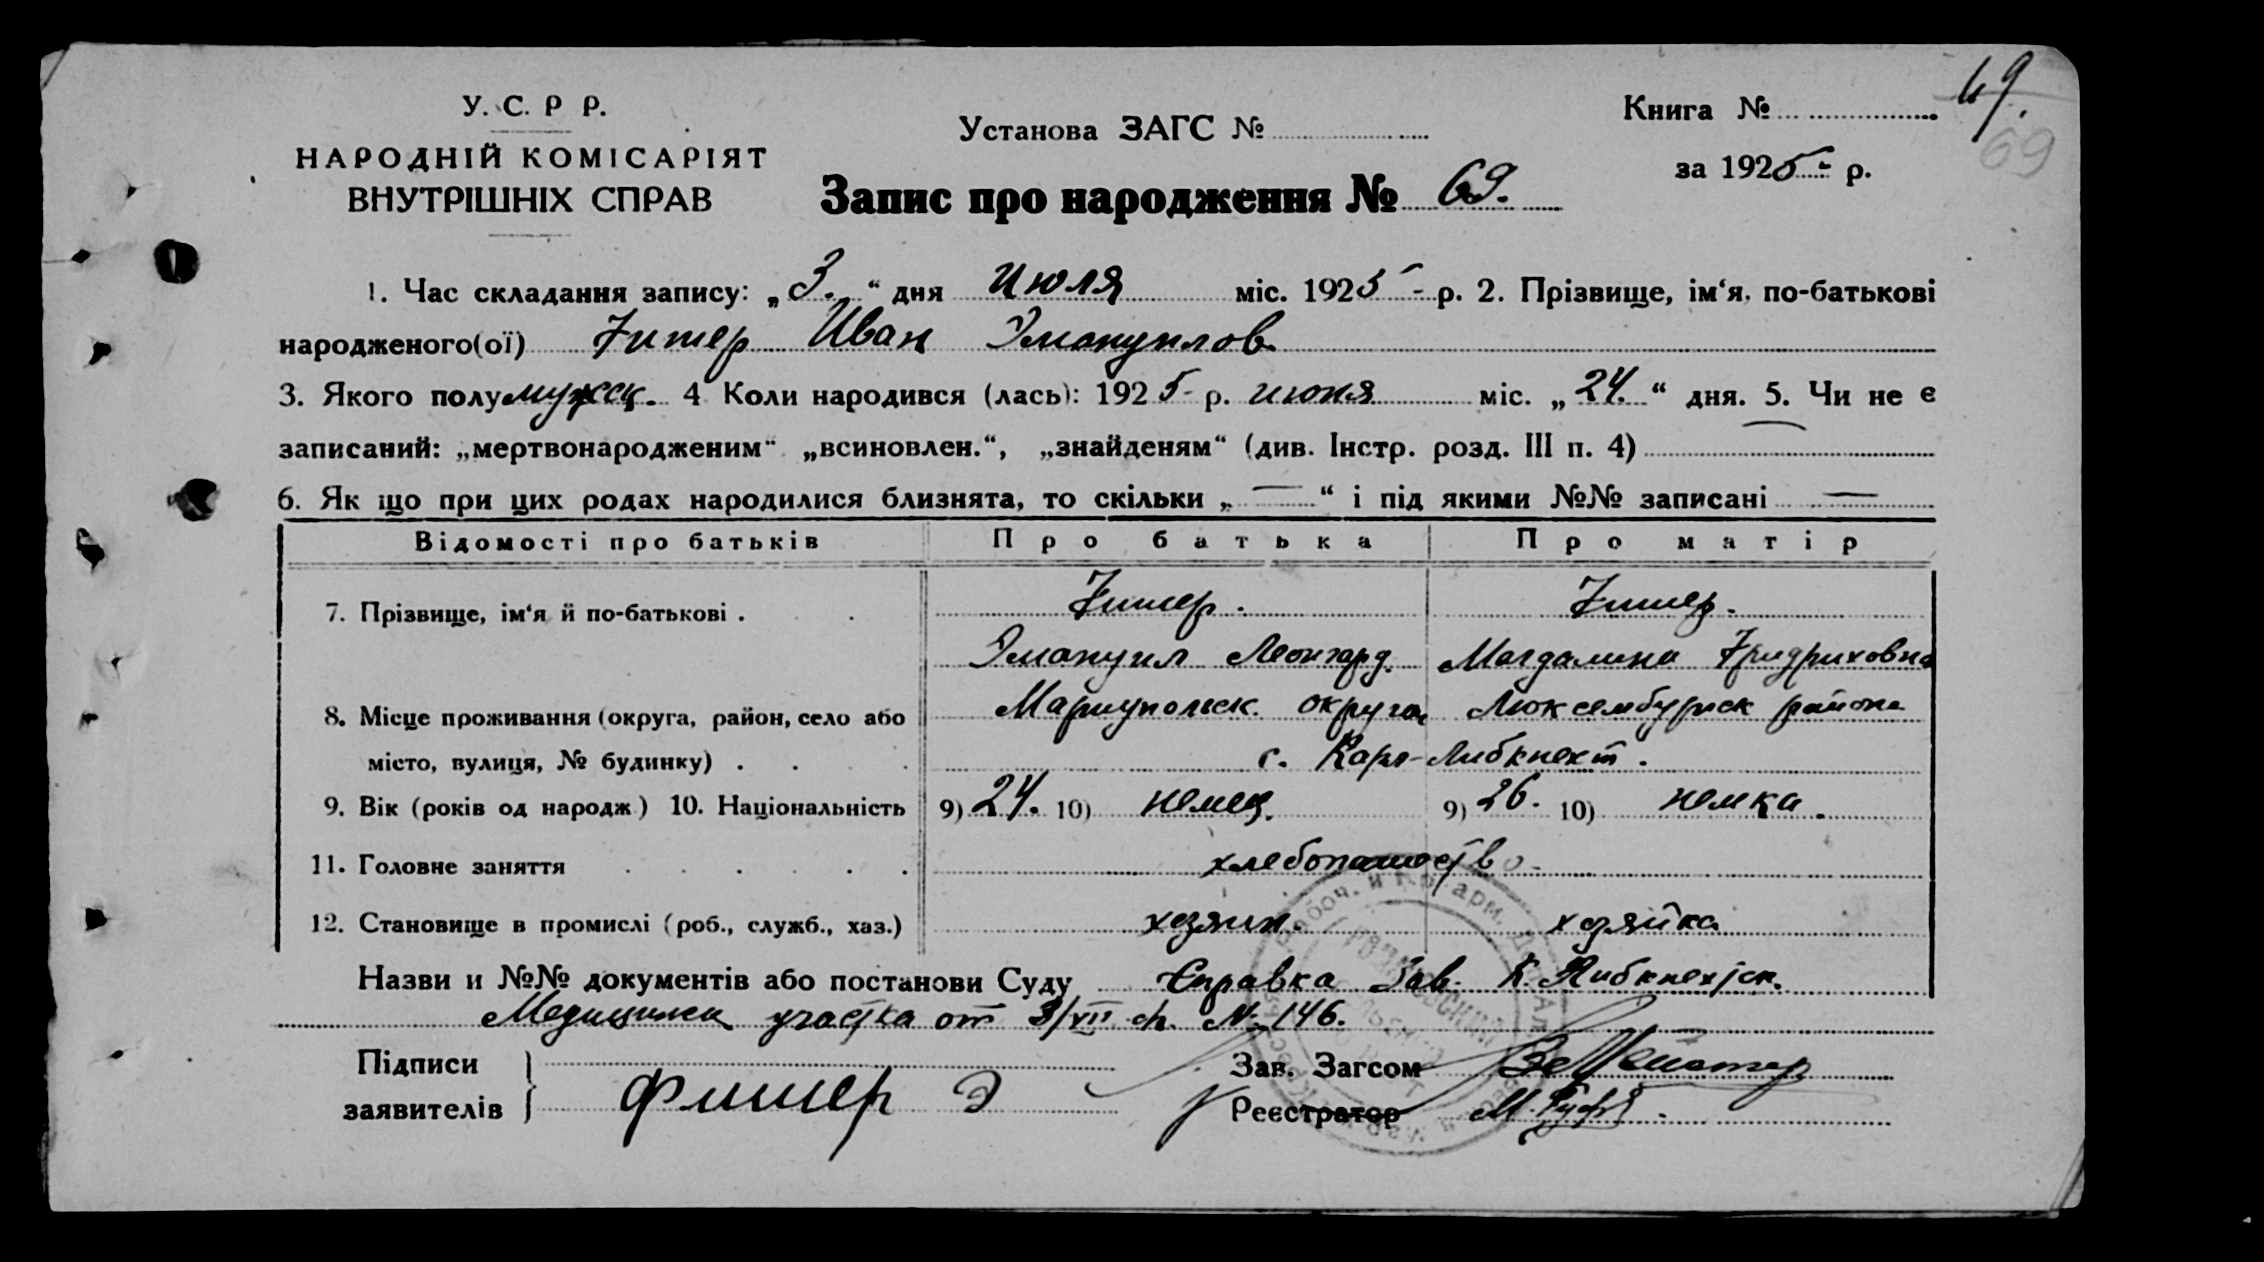 У. С. Р Р.
НАРОДНІЙ КОМІСАРІЯТ
ВНУТРІШНІХ СПРАВ
Установа ЗАГС №
Запис про народження № 69.
Книга №
за 1925 р.
69
1. Час складання запису: „3.“ дня июля міс. 1925 - р. 2. Прізвище, ім‘я, по-батькові
народженого(ої) Фишер Иван Эмануилов.
3. Якого полу мужск. 4 Коли народився (лась): 1925 р. июня міс. „24.“ дня. 5. Чи не є
записаний: „мертвонародженим“ „всиновлен.“, „знайденям“ (див. Інстр. розд. III п. 4) —
6. Як що при цих родах народилися близнята, то скільки „ — “ і під якими №№ записані —
Відомості про батьків Про батька Про матір
7. Прізвище, ім‘я й по-батькові . Фишер. Фишер.
Эмануил Леонгард. Магдалина Фридриховна
8. Місце проживання (округа, район, село або Мариупольск. округа, Люксембургск района
місто, вулиця, № будинку) . с. Карл-Либкнехт.
9. Вік (років од народж) 10. Національність 9) 24. 10) немец. 9) 26. 10) немка.
11. Головне заняття хлебопашество
12. Становище в промислі (роб., служб., хаз.) хозяин. хозяйка
Назви и №№ документів або постанови Суду Справка Зав. К. Либкнехтск.
Медицинск участка от 3/VII с/г. № 146.
Підписи
заявителів } Фишер Э
Зав. Загсом
Реєстратор М.